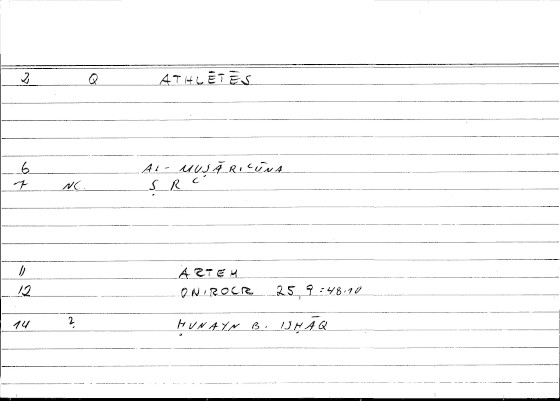 2 Q ATHLĒTĒS
6 AL-MUṢĀRIʿŪNA
7 NC. Ṣ R ʿ
11 ARTEM
12 ONIROCR 25, 9 : 48.10
14 ? ḤUNAYN B. ISḤĀQ